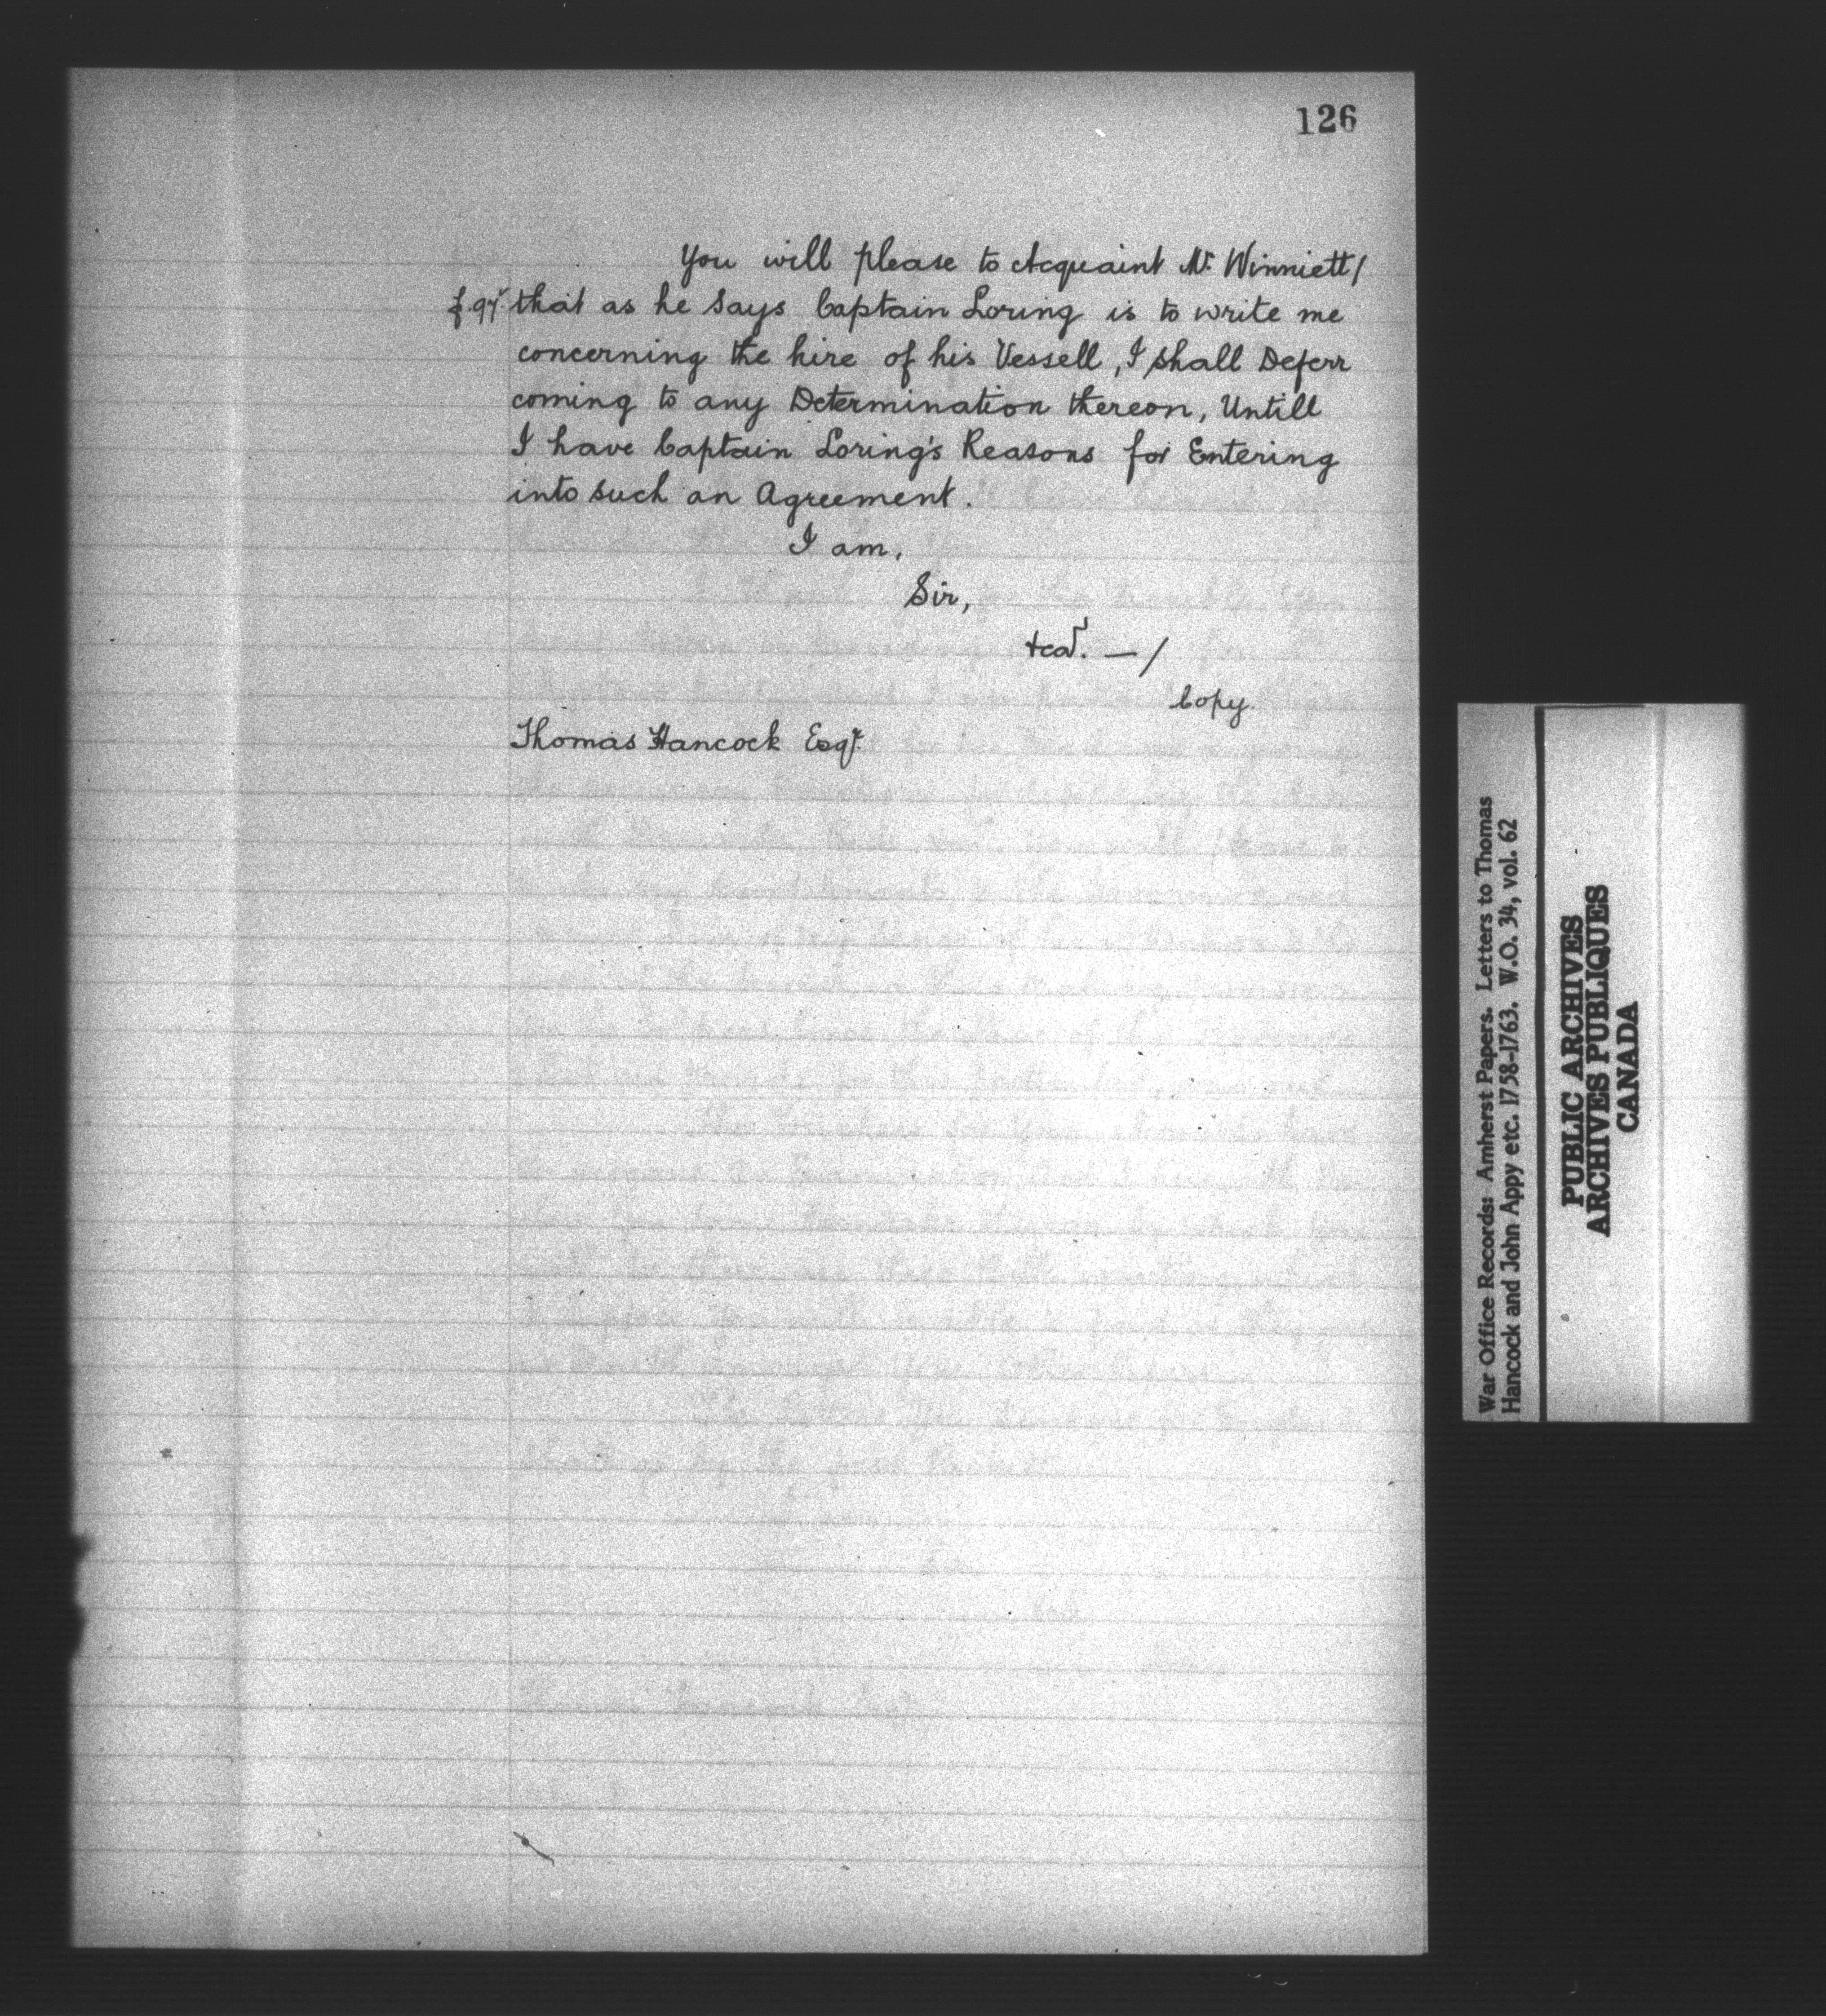 126
You will please to Acquaint Mr. Winniett/
f.97. that as he Says Captain Loring is to write me
concerning the hire of his Vessell, I shall Deferr
coming to any Determination thereon, Untill
I have Captain Loring's Reasons for Entering
into such an Agreement.
I am,
Sir,
&ca. —/
Copy.
Thomas Hancock Esqr.
War Office Records: Amherst Papers. Letters to Thomas
Hancock and John Appy etc. 1758-1763. W.O. 34, vol. 62
PUBLIC ARCHIVES
ARCHIVES PUBLIQUES
CANADA